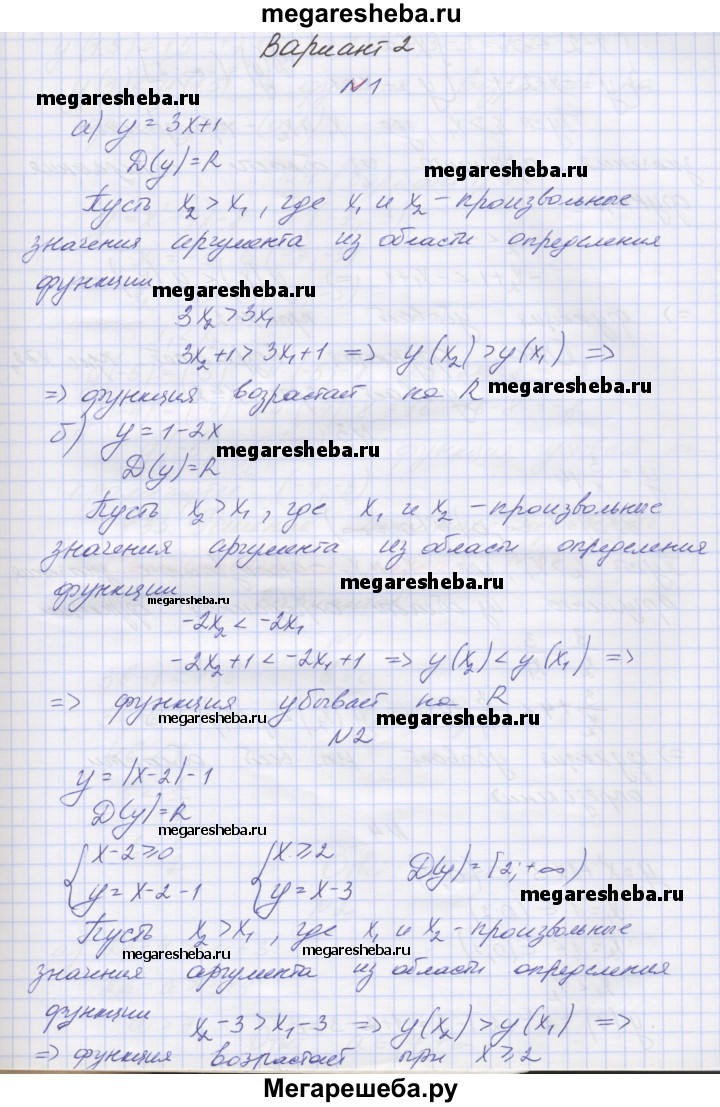 megaresheba.ru
Вариант 2
№1
megaresheba.ru
а) y = 3x+1
D(y)=R
megaresheba.ru
Пусть x₂ > x₁, где x₁ и x₂ - произвольные
значения аргумента из области определения
функции
megaresheba.ru
3x₂ > 3x₁
3x₂+1 > 3x₁+1 => y(x₂) > y(x₁) =>
=> функция возрастает на R
megaresheba.ru
б) y = 1-2x
D(y)=R
megaresheba.ru
Пусть x₂ > x₁, где x₁ и x₂ - произвольные
значения аргумента из области определения
функции
megaresheba.ru
megaresheba.ru
-2x₂ < -2x₁
-2x₂+1 < -2x₁+1 => y(x₂) < y(x₁) =>
=> функция убывает на R
megaresheba.ru
megaresheba.ru
№2
y = |x-2|-1
D(y)=R
megaresheba.ru
{x-2≥0 {x≥2 D(y)=[2;+∞)
{y=x-2-1 {y=x-3
megaresheba.ru
Пусть x₂ > x₁, где x₁ и x₂ - произвольные
megaresheba.ru
megaresheba.ru
значения аргумента из области определения
функции
x₂-3 > x₁-3 => y(x₂) > y(x₁) =>
=> функция возрастает при x≥2
Мегарешеба.ру